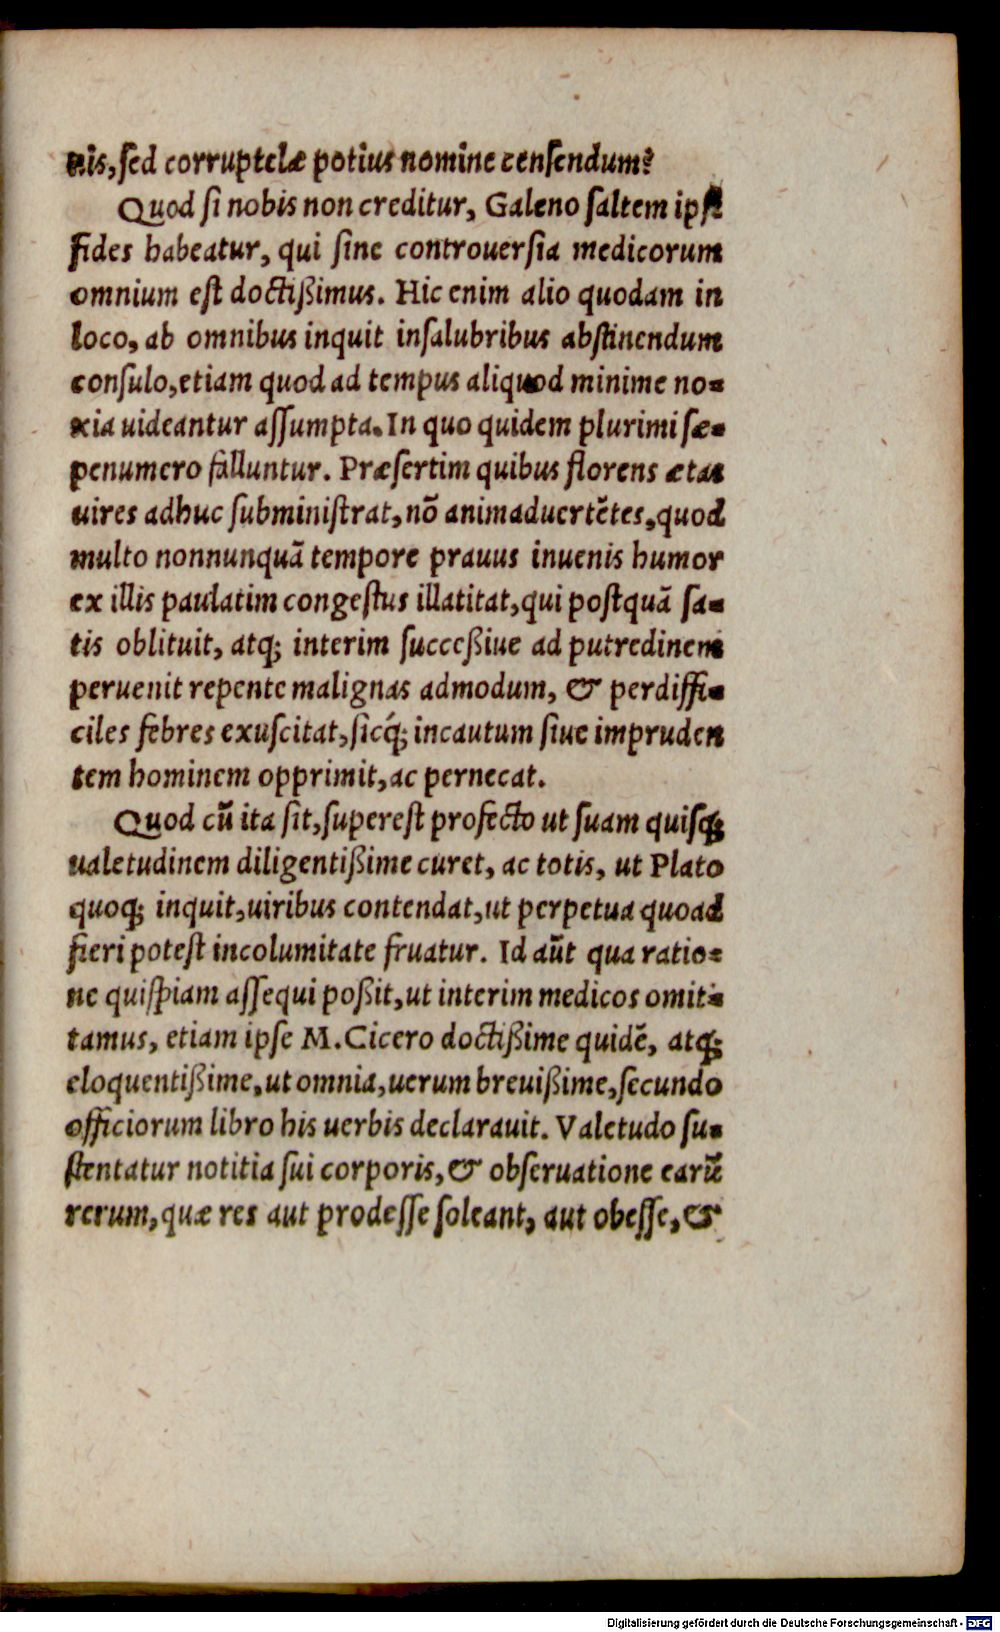 nis, ſed corruptelæ potius nomine cenſendum?
Quod ſi nobis non creditur, Galeno ſaltem ipſi
fides habeatur, qui ſine controuerſia medicorum
omnium eſt doctißimus. Hic enim alio quodam in
loco, ab omnibus inquit inſalubribus abſtinendum
conſulo, etiam quod ad tempus aliquod minime no-
xia uideantur aſſumpta. In quo quidem plurimi ſæ-
penumero falluntur. Præſertim quibus florens ætas
uires adhuc ſubminiſtrat, nõ animaduertẽtes, quod
multo nonnunquã tempore prauus inuenis humor
ex illis paulatim congeſtus illatitat, qui poſtquã ſa-
tis oblituit, atq; interim ſucceßiue ad putredinem
peruenit repente malignas admodum, & perdiffi-
ciles febres exuſcitat, ſicq́; incautum ſiue impruden
tem hominem opprimit, ac pernecat.
Quod cũ ita ſit, ſupereſt profecto ut ſuam quiſq;
ualetudinem diligentißime curet, ac totis, ut Plato
quoq; inquit, uiribus contendat, ut perpetua quoad
fieri poteſt incolumitate fruatur. Id aũt qua ratio-
ne quiſpiam aſſequi poßit, ut interim medicos omit-
tamus, etiam ipſe M. Cicero doctißime quidẽ, atq;
eloquentißime, ut omnia, uerum breuißime, ſecundo
officiorum libro his uerbis declarauit. Valetudo ſu-
ſtentatur notitia ſui corporis, & obſeruatione earũ
rerum, quæ res aut prodeſſe ſoleant, aut obeſſe, &
Digitalisierung gefördert durch die Deutsche Forschungsgemeinschaft - DFG